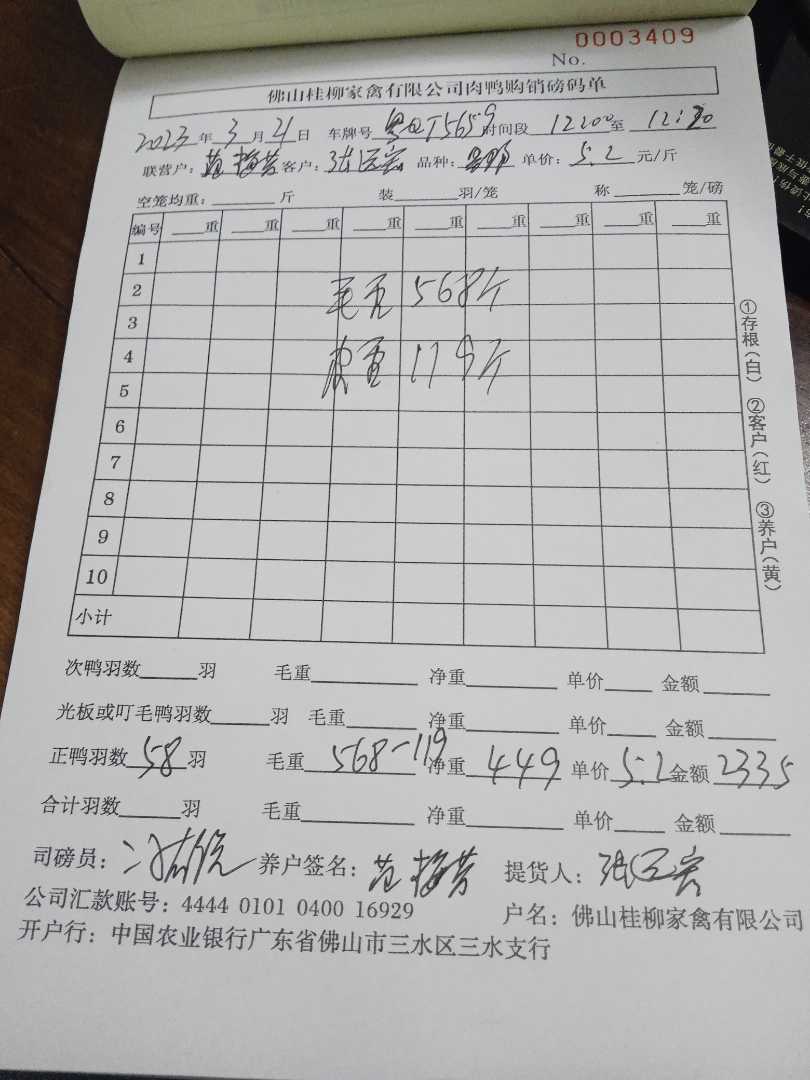 0003409
No.
佛山桂柳家禽有限公司肉鸭购销磅码单
2023年3月21日 车牌号 粤QT5659 时间段 12:00至 12:20
联营户：范梅芳 客户：张运宏 品种： 单价：5.2元/斤
空笼均重：____斤 装____羽/笼 称____笼/磅
编号 __重 __重 __重 __重 __重 __重 __重 __重 __重
1
2 毛重 568斤
3
4 皮重 119斤
5
6
7
8
9
10
小计
①存根(白) ②客户(红) ③养户(黄)
次鸭羽数____羽 毛重____ 净重____ 单价____ 金额____
光板或叮毛鸭羽数____羽 毛重____ 净重____ 单价____ 金额____
正鸭羽数58羽 毛重 568-119 净重 449 单价 5.2 金额 2335
合计羽数____羽 毛重____ 净重____ 单价____ 金额____
司磅员： 养户签名：范梅芳 提货人：张运宏
公司汇款账号：4444 0101 0400 16929 户名：佛山桂柳家禽有限公司
开户行：中国农业银行广东省佛山市三水区三水支行